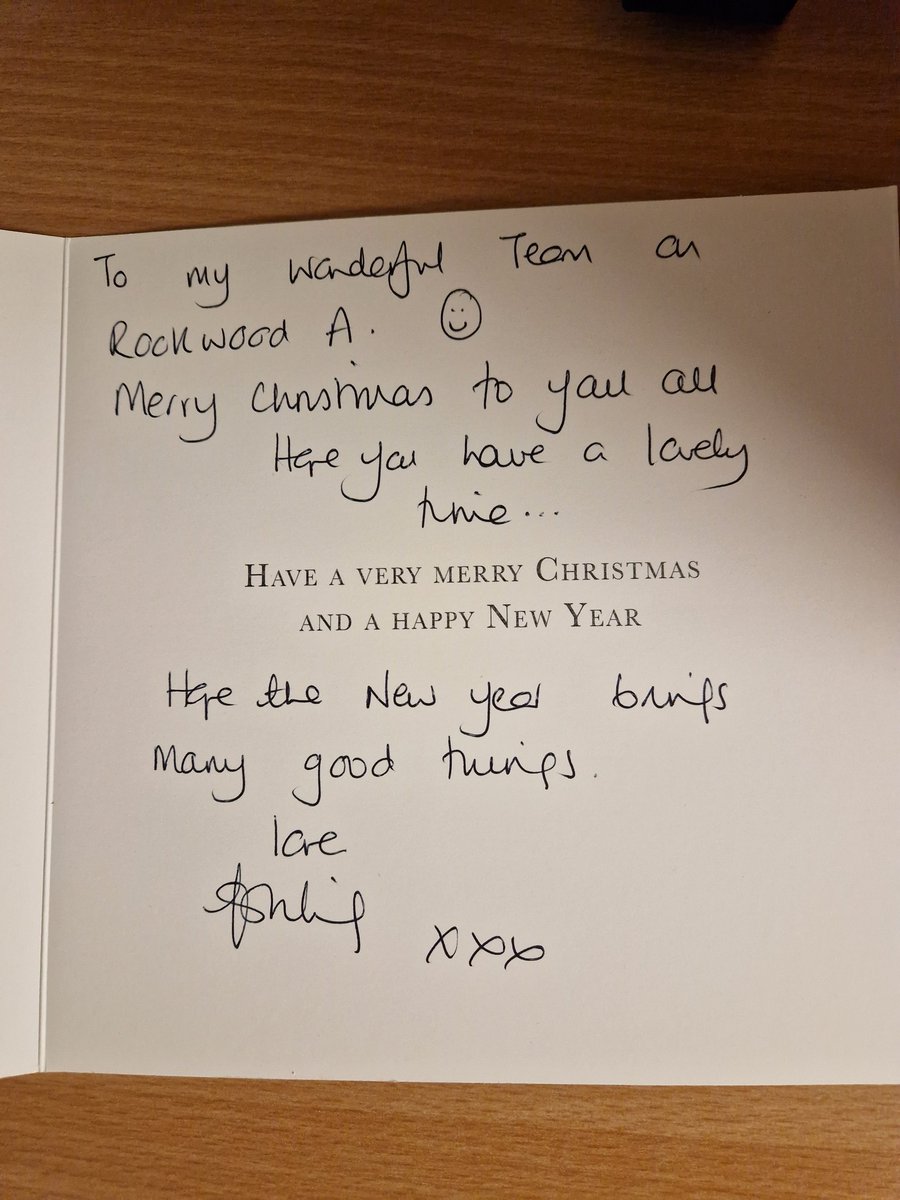 To my wonderful Team on
Rockwood A. ☺
Merry Christmas to you all
Hope you have a lovely
time...
HAVE A VERY MERRY CHRISTMAS
AND A HAPPY NEW YEAR
Hope the New year brings
Many good things.
love
xxx